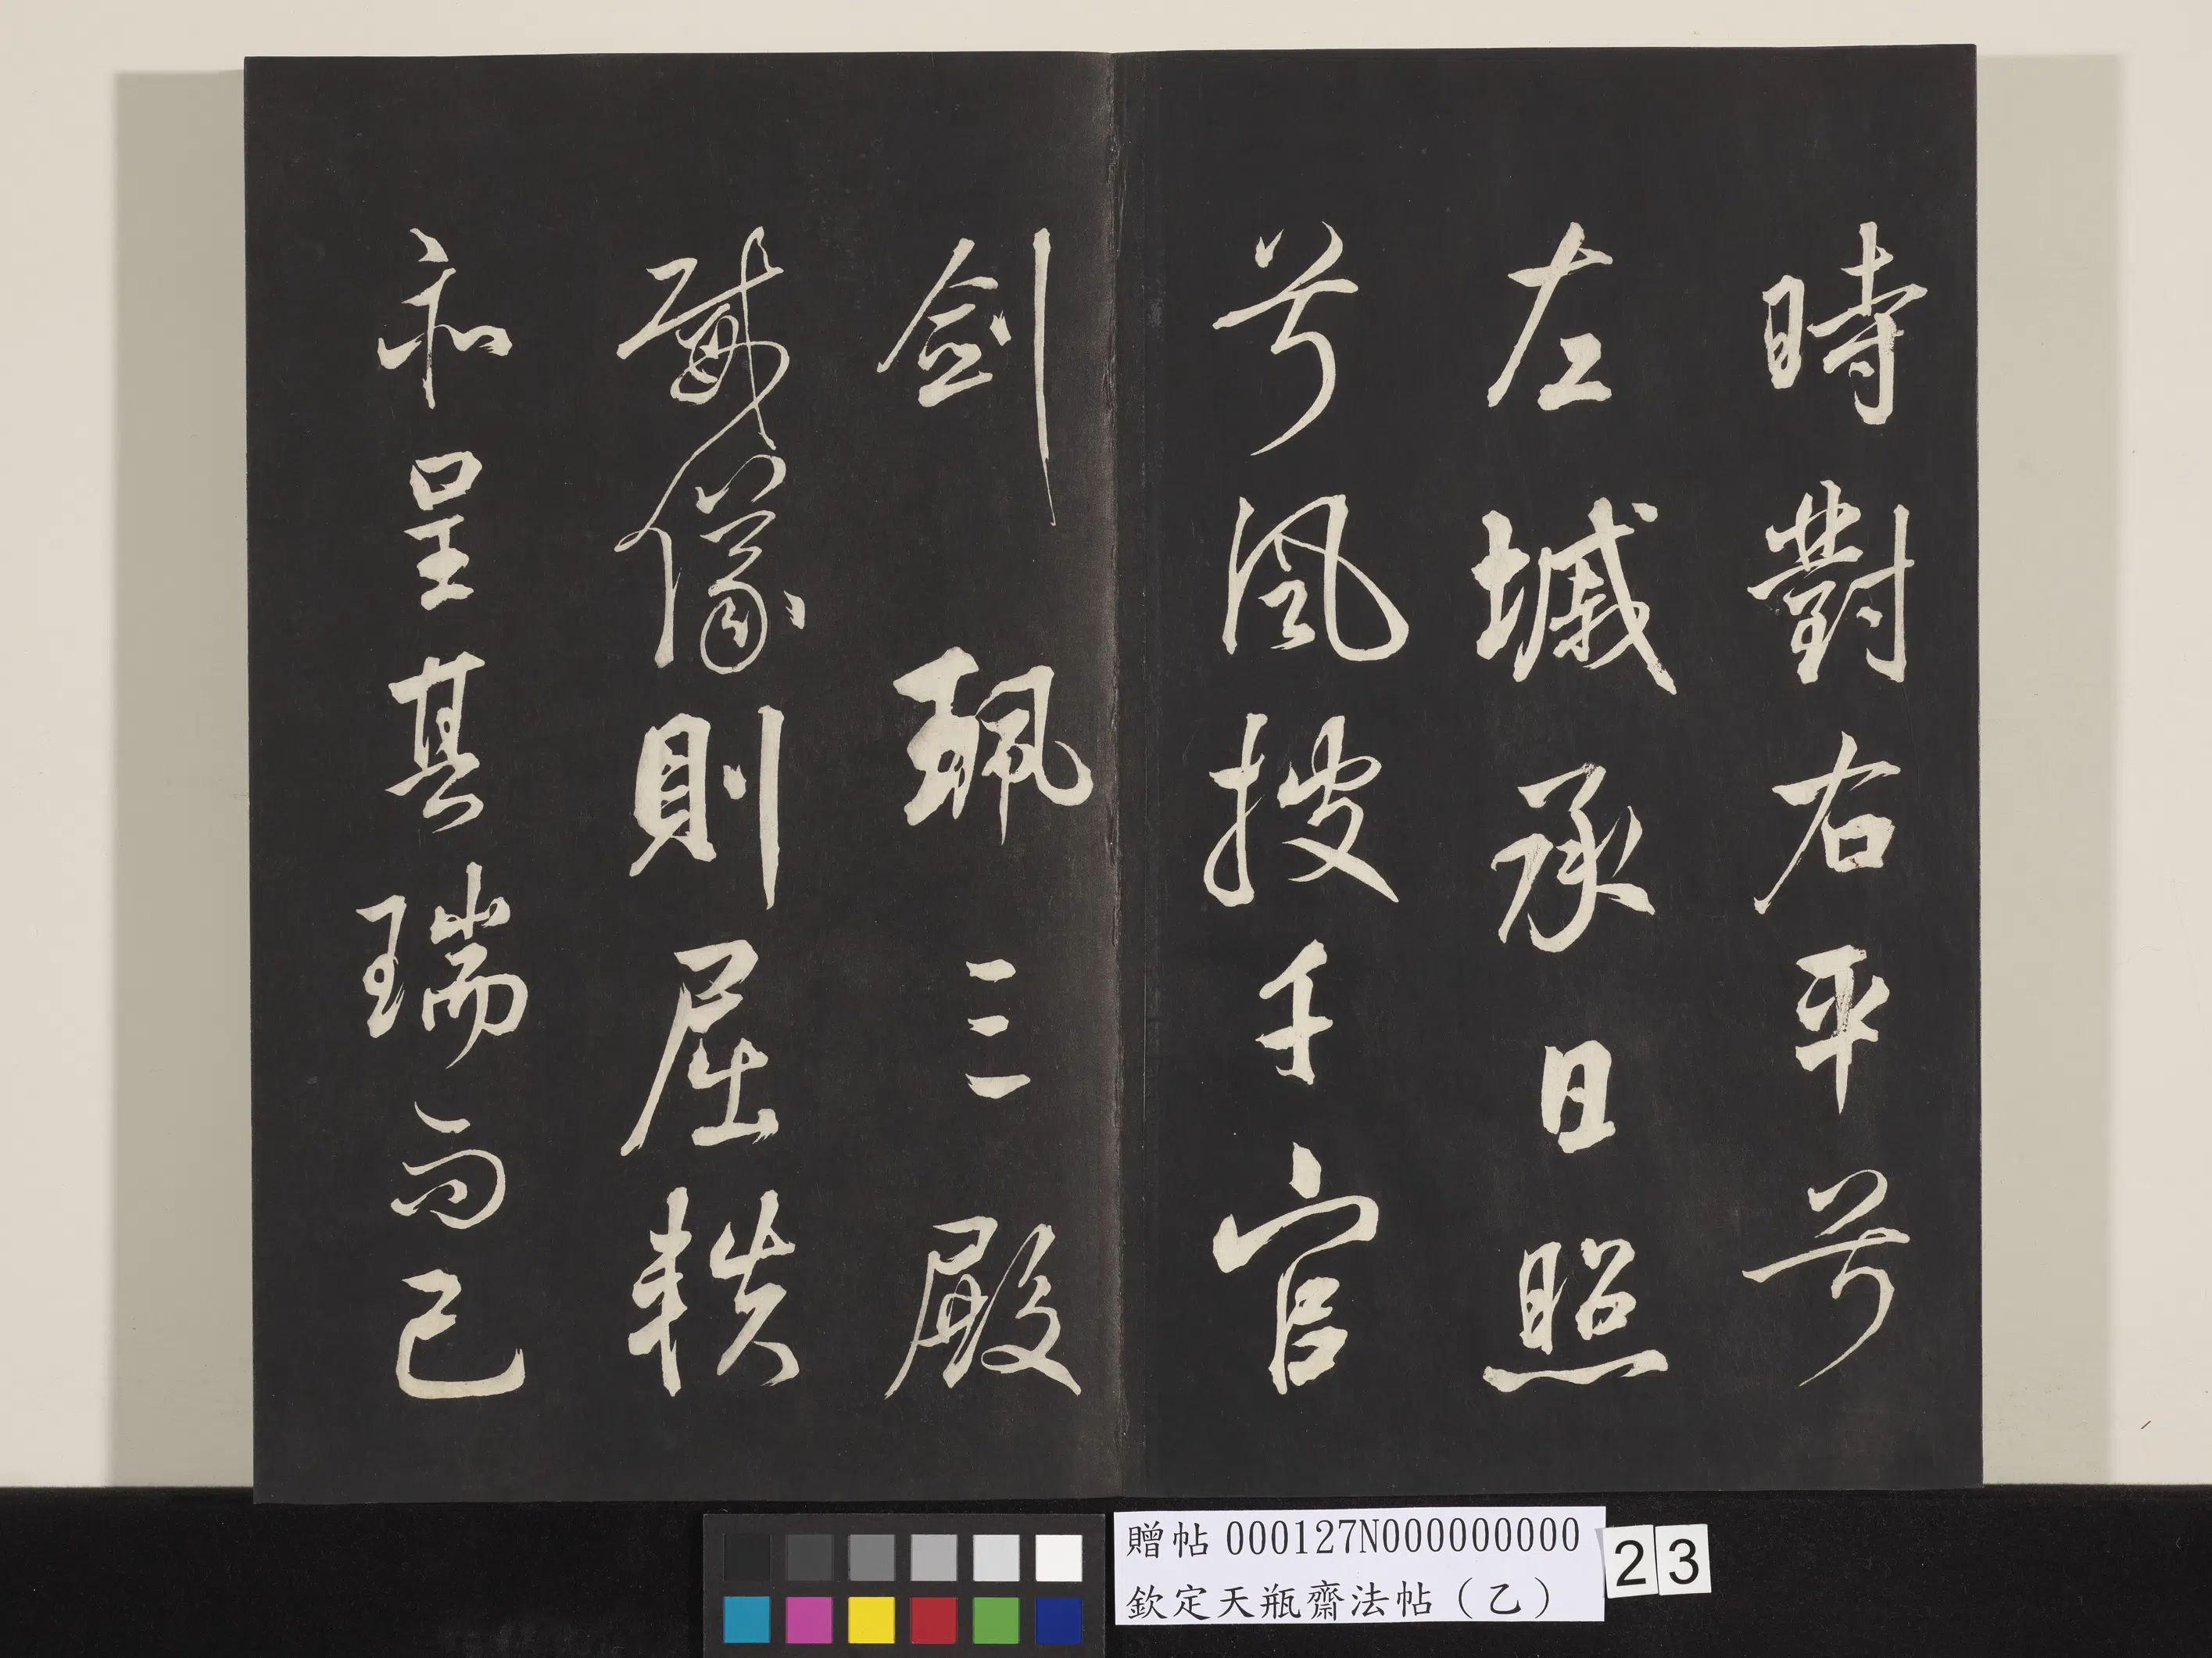 時對右平兮
左墄承日照
兮風披千官
劍珮三殿
威儀則屈軼
和呈其瑞而已
贈帖 000127N000000000
欽定天瓶齋法帖（乙）
23